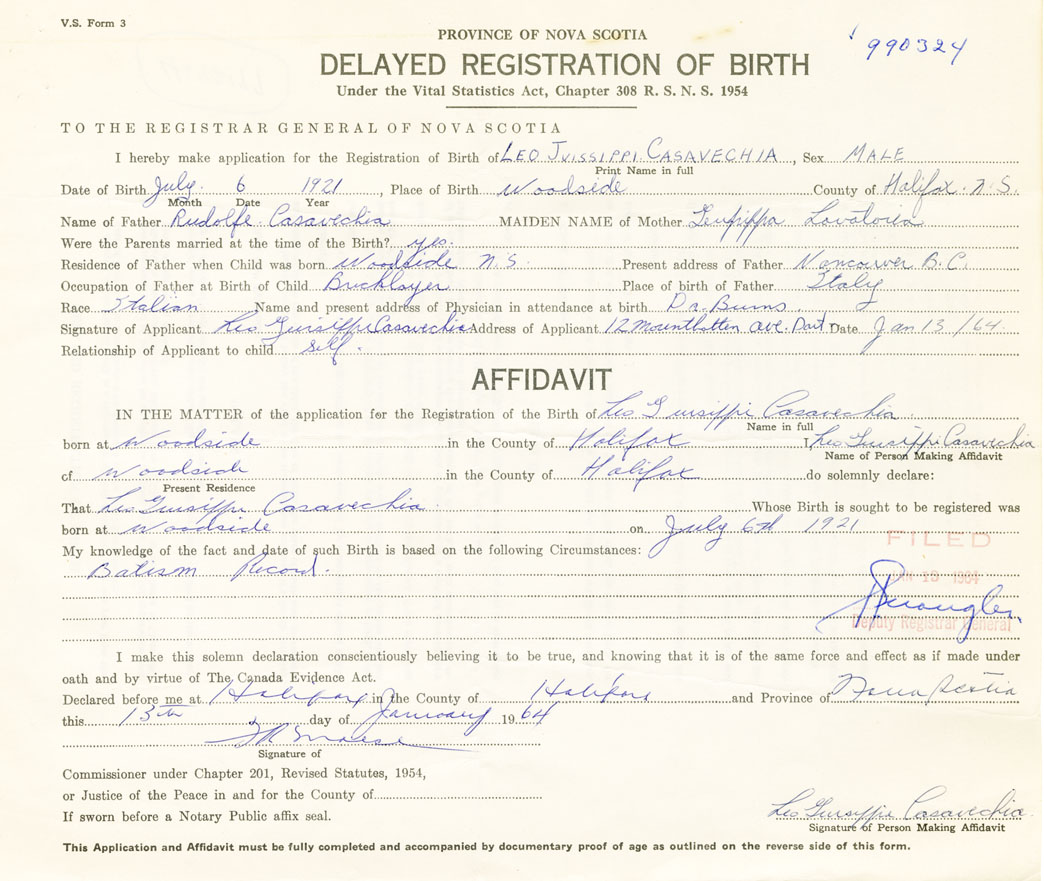 V.S. Form 3
PROVINCE OF NOVA SCOTIA
990324
DELAYED REGISTRATION OF BIRTH
Under the Vital Statistics Act, Chapter 308 R. S. N. S. 1954
TO THE REGISTRAR GENERAL OF NOVA SCOTIA
I hereby make application for the Registration of Birth of LEO JUISSIPPI CASAVECHIA, Sex MALE
Print Name in full
Date of Birth July 6 1921, Place of Birth Woodside County of Halifax. N.S.
Month Date Year
Name of Father Rudolfe Casavechia MAIDEN NAME of Mother Lovatoria
Were the Parents married at the time of the Birth? yes.
Residence of Father when Child was born Woodside N.S. Present address of Father Vancouver B.C.
Occupation of Father at Birth of Child Bricklayer Place of birth of Father Italy
Race Italian Name and present address of Physician in attendance at birth Dr. Burns
Signature of Applicant Leo Guisippi Casavechia Address of Applicant 12 Mountbatten ave. Dart. Date Jan 13/64
Relationship of Applicant to child self.
AFFIDAVIT
IN THE MATTER of the application for the Registration of the Birth of Leo Guisippi Casavechia
Name in full
born at Woodside in the County of Halifax I, Leo Guisippi Casavechia
Name of Person Making Affidavit
of Woodside in the County of Halifax do solemnly declare:
Present Residence
That Leo Guisippi Casavechia Whose Birth is sought to be registered was
born at Woodside on July 6th 1921
FILED
My knowledge of the fact and date of such Birth is based on the following Circumstances:
Batism Record.
JAN 13 1964
Deputy Registrar General
I make this solemn declaration conscientiously believing it to be true, and knowing that it is of the same force and effect as if made under
oath and by virtue of The Canada Evidence Act.
Declared before me at Halifax in the County of Halifax and Province of Nova Scotia
this 13th day of January 1964
Signature of
Commissioner under Chapter 201, Revised Statutes, 1954,
or Justice of the Peace in and for the County of
If sworn before a Notary Public affix seal.
Leo Guisippi Casavechia
Signature of Person Making Affidavit
This Application and Affidavit must be fully completed and accompanied by documentary proof of age as outlined on the reverse side of this form.